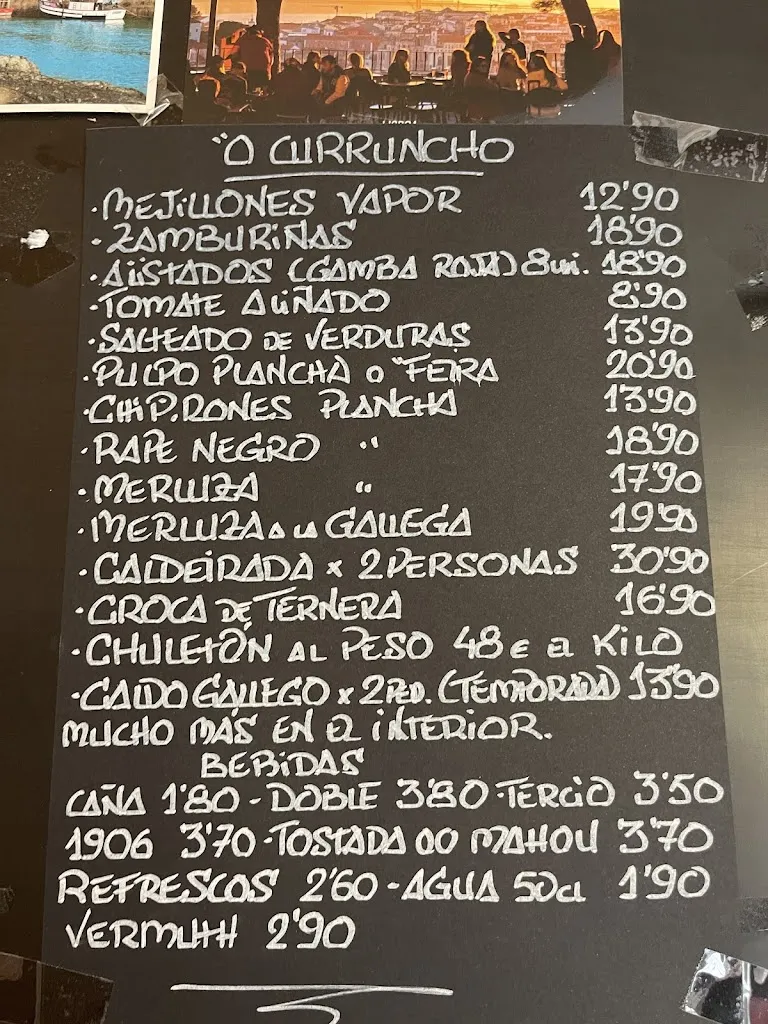 "O CURRUNCHO
·MEJILLONES VAPOR 12'90
·ZAMBURIÑAS 18'90
·ALISTADOS (GAMBA ROJA) 8uni. 18'90
·TOMATE ALIÑADO 8'90
·SALTEADO DE VERDURAS 13'90
·PULPO PLANCHA O "FEIRA 20'90
·CHIPIRONES PLANCHA 13'90
·RAPE NEGRO " 18'90
·MERLUZA " 17'90
·MERLUZA A LA GALLEGA 19'90
·CALDEIRADA x 2 PERSONAS 30'90
·CROCA DE TERNERA 16'90
·CHULETÓN AL PESO 48€ EL KILO
·CALDO GALLEGO x 2 PED. (TEMPORADA) 13'90
MUCHO MÁS EN EL INTERIOR.
BEBIDAS
CAÑA 1'80 - DOBLE 3'80 · TERCIO 3'50
1906 3'70 - TOSTADA 00 MAHOU 3'70
REFRESCOS 2'60 - AGUA 50cl 1'90
VERMUTH 2'90